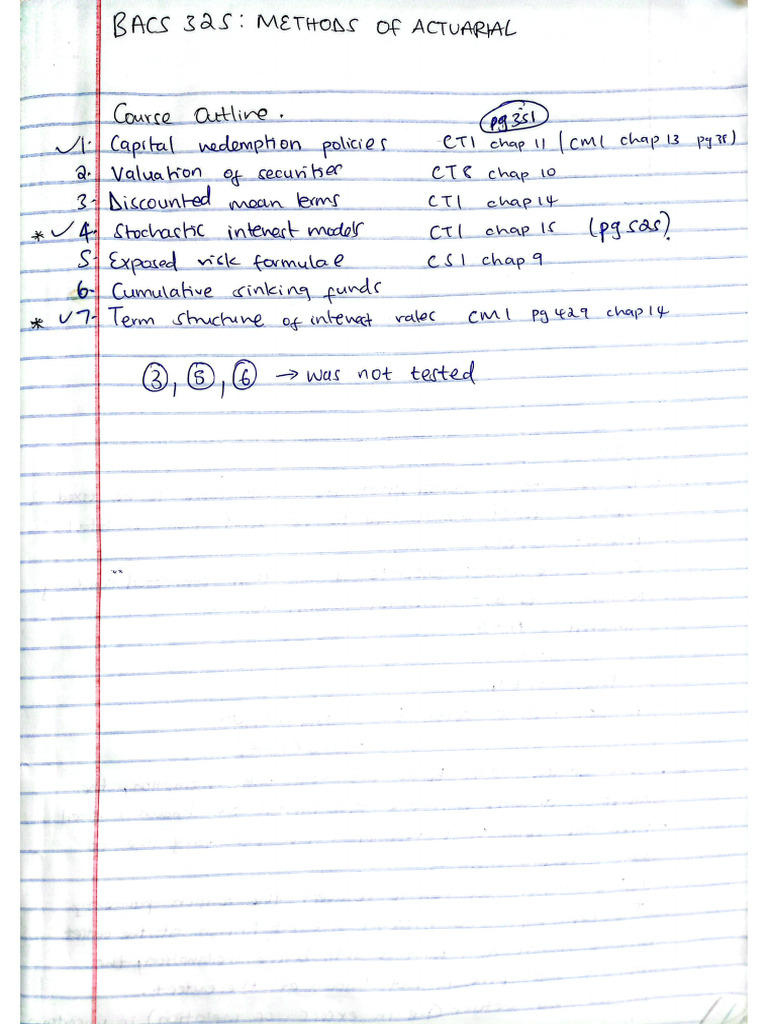 BACS 325: METHODS OF ACTUARIAL
Course Outline. pg 351
✓1. Capital redemption policies CT1 chap 11 / (CM1 chap 13 pg 35)
2. Valuation of securities CT8 chap 10
3- Discounted mean terms CT1 chap 14
* ✓ 4. Stochastic interest models CT1 chap 15 (pg 525)
5- Exposed risk formulae CS1 chap 9
6- Cumulative sinking funds
* ✓7- Term structure of interest rates CM1 pg 429 chap 14
③, ⑤, ⑥ → was not tested